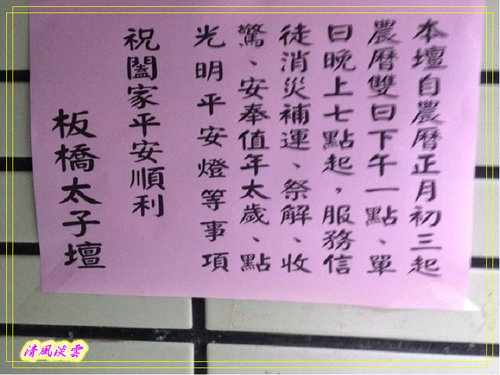 本壇自農曆正月初三起
農曆雙日下午一點、單
日晚上七點起，服務信
徒消災補運、祭解、收
驚、安奉值年太歲、點
光明平安燈等事項
祝闔家平安順利
板橋太子壇
清風淡雲